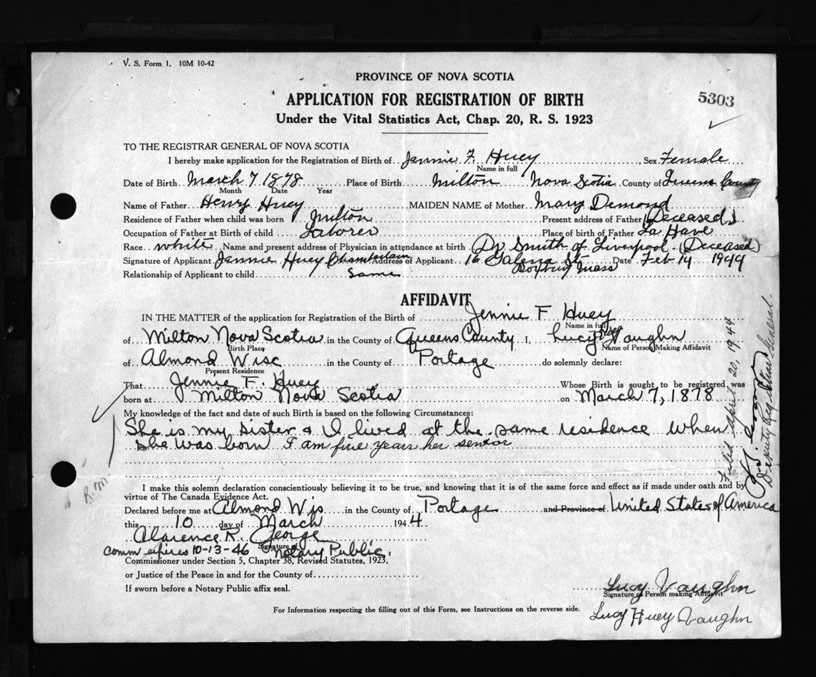 V. S. Form 1. 10M 10-42
PROVINCE OF NOVA SCOTIA
APPLICATION FOR REGISTRATION OF BIRTH
5303
Under the Vital Statistics Act, Chap. 20, R. S. 1923
TO THE REGISTRAR GENERAL OF NOVA SCOTIA
I hereby make application for the Registration of Birth of Jennie F. Huey Sex Female
Name in full
Date of Birth March 7 1878 Place of Birth Milton Nova Scotia County of Queens County
Month Date Year
Name of Father Henry Huey MAIDEN NAME of Mother Mary Demond
Residence of Father when child was born Milton Present address of Father (Deceased)
Occupation of Father at Birth of child Laborer Place of birth of Father La Have
Race white Name and present address of Physician in attendance at birth Dr Smith of Liverpool (Deceased)
Signature of Applicant Jennie Huey Chamberlain Address of Applicant 16 Galena St Date Feb 14 1944
Roxbury Mass
Relationship of Applicant to child Same
AFFIDAVIT
IN THE MATTER of the application for Registration of the Birth of Jennie F Huey
Name in full
of Milton Nova Scotia in the County of Queens County I, Lucy Huey Vaughn
Birth Place Name of Person Making Affidavit
of Almond Wisc in the County of Portage do solemnly declare:
Present Residence
That Jennie F. Huey Whose Birth is sought to be registered was
born at Milton Nova Scotia on March 7, 1878
My knowledge of the fact and date of such Birth is based on the following Circumstances:
She is my sister & I lived at the same residence when
she was born I am five years her senior
I make this solemn declaration conscientiously believing it to be true, and knowing that it is of the same force and effect as if made under oath and by
virtue of The Canada Evidence Act.
Declared before me at Almond Wis in the County of Portage and Province of United States of America
this 10 day of March 1944.
Clarence K. George
comm expires 10-13-46 Notary Public.
Commissioner under Section 5, Chapter 38, Revised Statutes, 1923.
or Justice of the Peace in and for the County of
If sworn before a Notary Public affix seal.
Lucy Vaughn
Signature of Person making Affidavit
Lucy Huey Vaughn
For Information respecting the filling out of this Form, see Instructions on the reverse side.
Filed April 20, 1944
Deputy Reg. General.